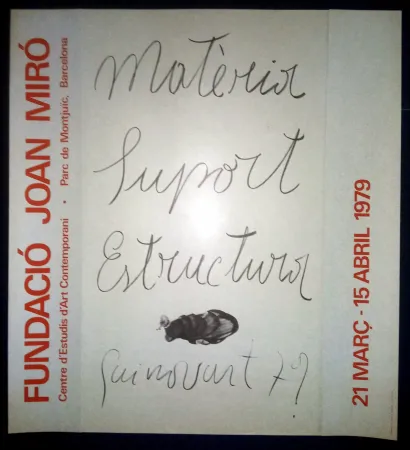 FUNDACIÓ JOAN MIRÓ
Centre d'Estudis d'Art Contemporani • Parc de Montjuïc, Barcelona
Matèria
Suport
Estructura
Guinovart 79
21 MARÇ - 15 ABRIL 1979